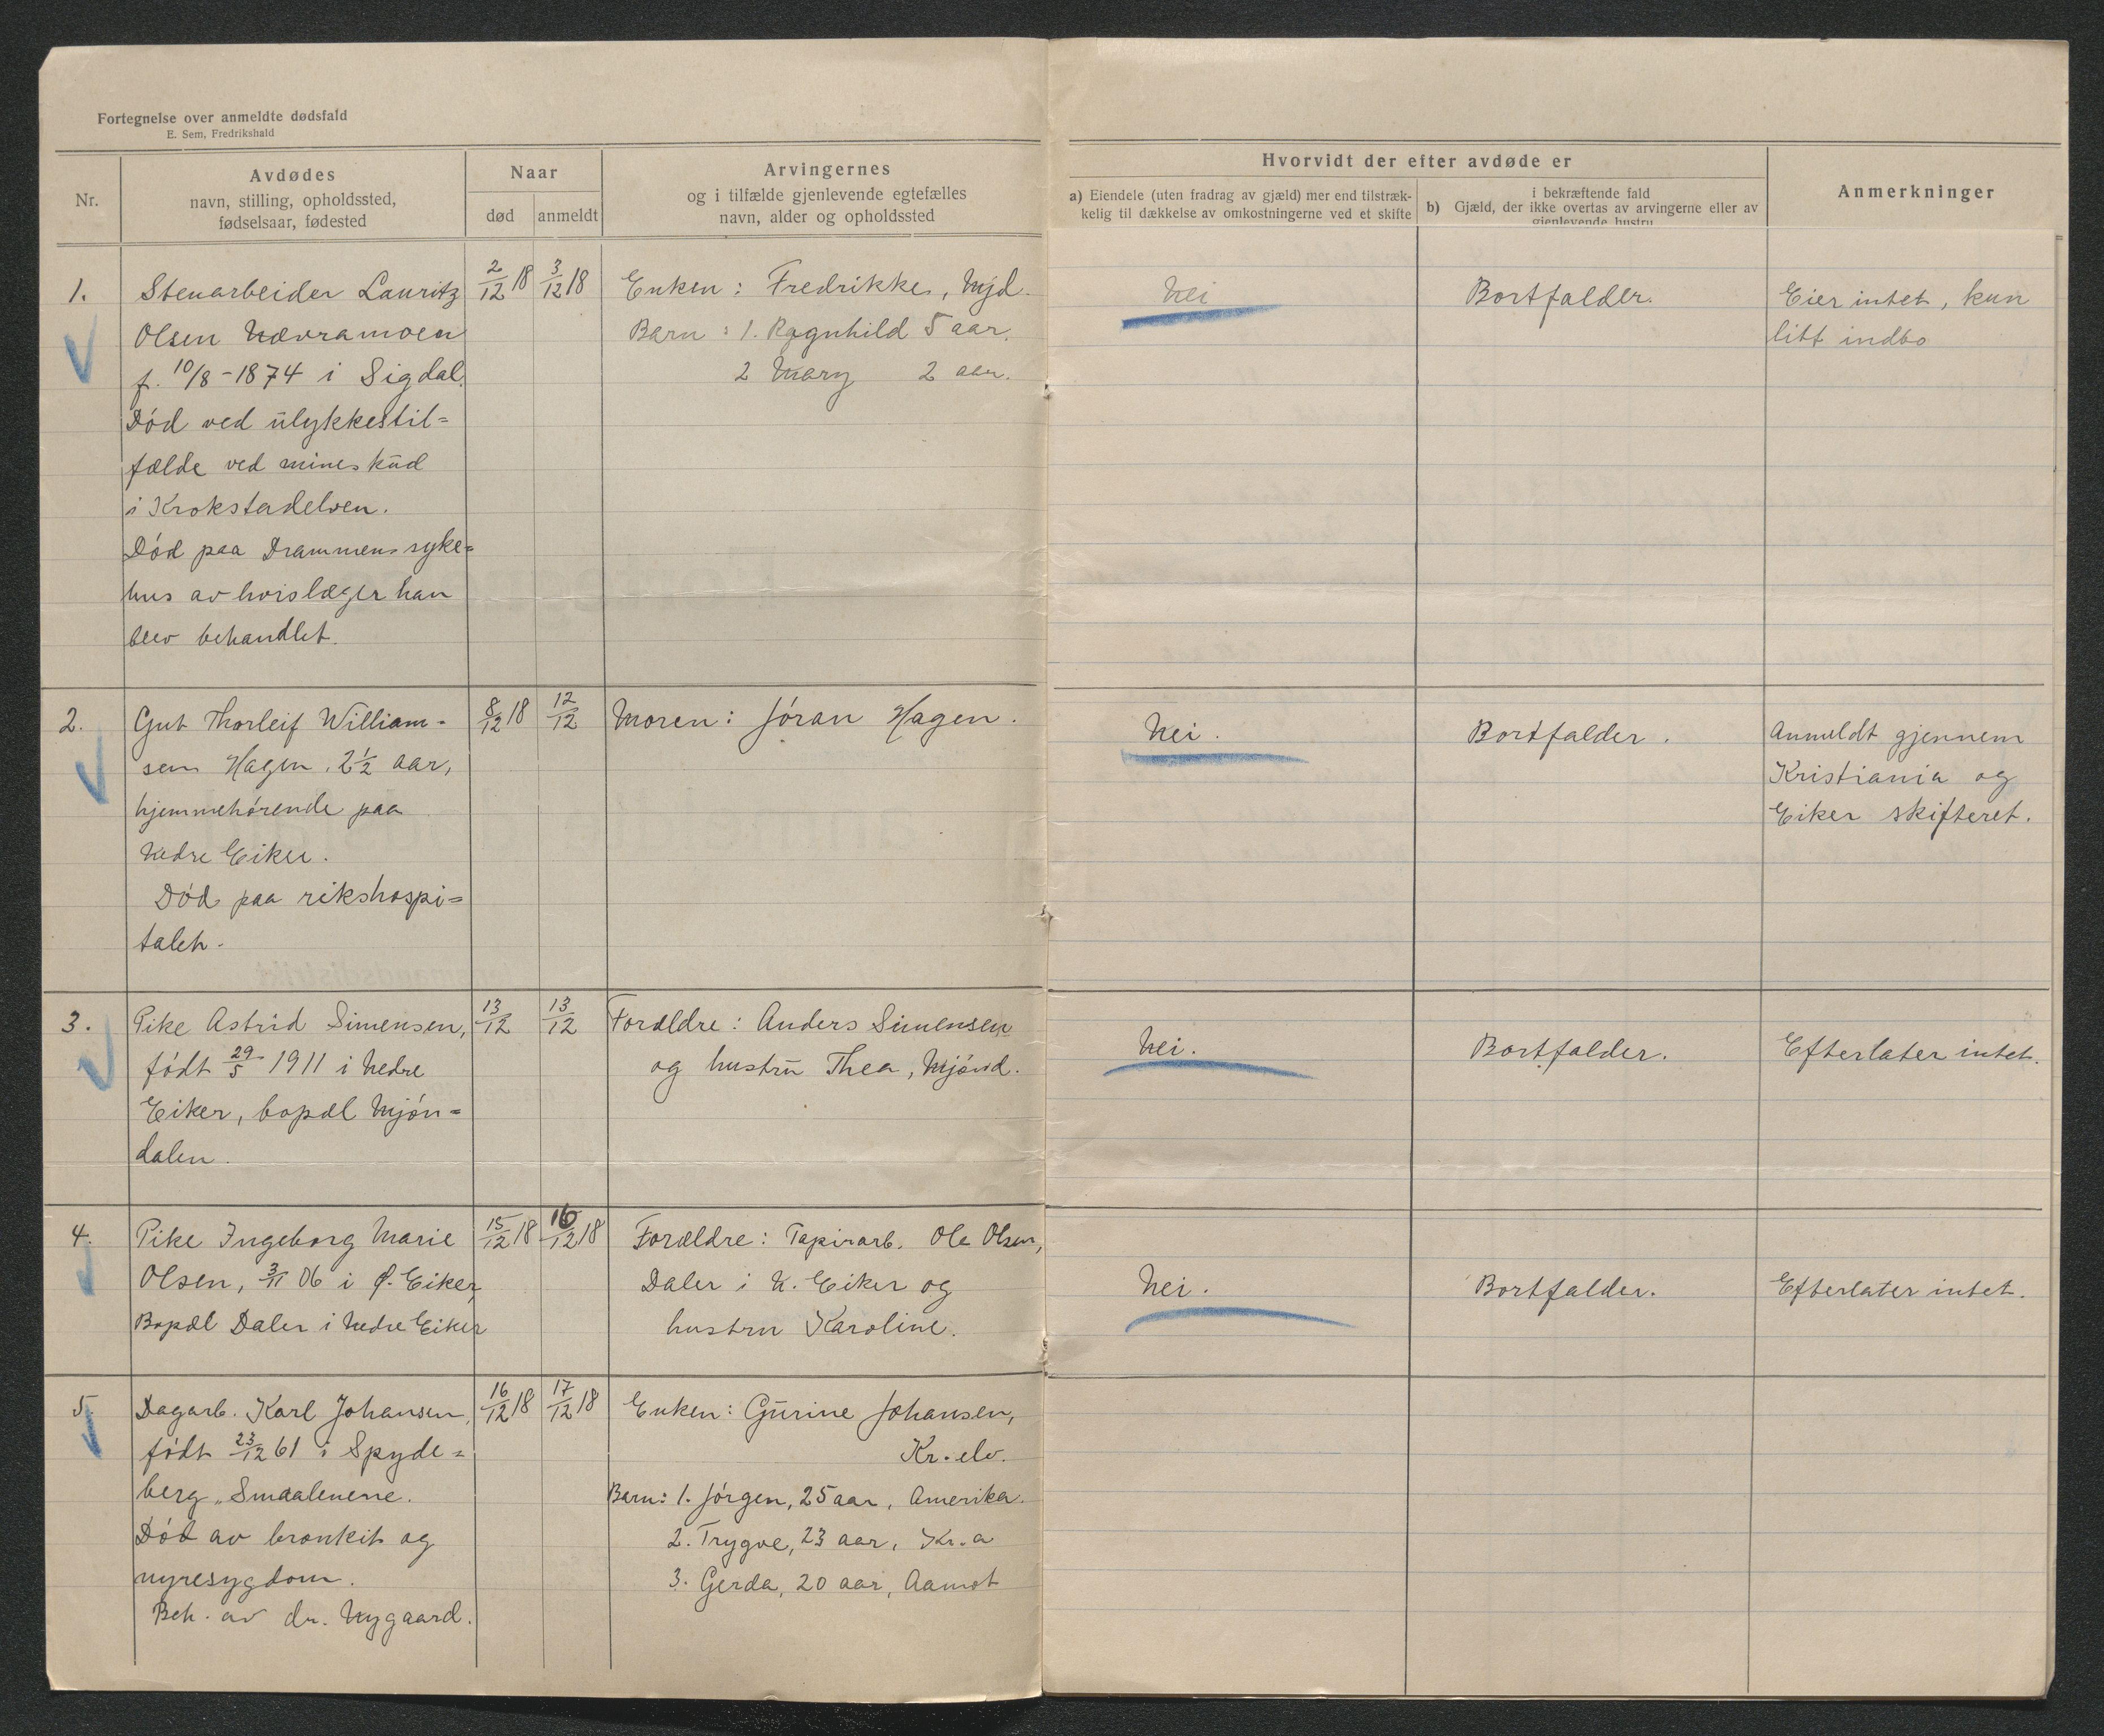 Fortegnelse over anmeldte dødsfald
E. Sem, Fredrikshald
Nr.
Avdødes
navn, stilling, opholdssted,
fødselsaar, fødested
Naar
død
anmeldt
Arvingernes
og i tilfælde gjenlevende egtefælles
navn, alder og opholdssted
Hvorvidt der efter avdøde er
a) Eiendele (uten fradrag av gjæld) mer end tilstræk-
kelig til dækkelse av omkostningerne ved et skifte
i bekræftende fald
b) Gjæld, der ikke overtas av arvingerne eller av
gjenlevende hustru
Anmerkninger
1.
Stenarbeider Lauritz
Olsen Nævramoen
f. 10/8-1874 i Sigdal.
Død ved ulykkestil=
fælde ved mineskud
i Krokstadelven.
Død paa Drammens syke=
hus av hvis læger han
blev behandlet.
2/12 18
3/12 18
Enken: Fredrikke, Mjd.
Barn: 1. Ragnhild 5 aar.
2 Mary 2 aar.
Nei
Bortfalder.
Eier intet, kun
litt indbo
2.
Gut Thorleif William=
sen Hagen, 2½ aar,
hjemmehørende paa
Nedre Eiker.
Død paa rikshospi=
talet.
8/12 18
12/12
Moren: Jøran Hagen.
Nei.
Bortfalder.
Anmeldt gjennem
Kristiania og
Eiker skifteret.
3.
Pike Astrid Simensen,
født 29/5 1911 i Nedre
Eiker, bopæl Mjøn=
dalen.
13/12
13/12
Forældre: Anders Simensen
og hustru Thea, Mjønd.
Nei.
Bortfalder.
Efterlater intet.
4.
Pike Ingeborg Marie
Olsen, 3/11 06 i Ø. Eiker,
Bopæl Daler i Nedre Eiker
15/12 18
16/12 18
Forældre: Papirarb. Ole Olsen,
Daler i N. Eiker og
hustru Karoline.
Nei.
Bortfalder.
Efterlater intet.
5.
Dagarb. Karl Johansen,
født 23/12 61 i Spyde=
berg, Smaalenene.
Død av bronkit og
nyresygdom.
Beh. av dr. Nygaard.
16/12 18
17/12 18
Enken: Gurine Johansen,
Kr.elv.
Barn: 1. Jørgen, 25 aar, Amerika.
2. Trygve, 23 aar, Kr.a
3. Gerda, 20 aar, Aamot